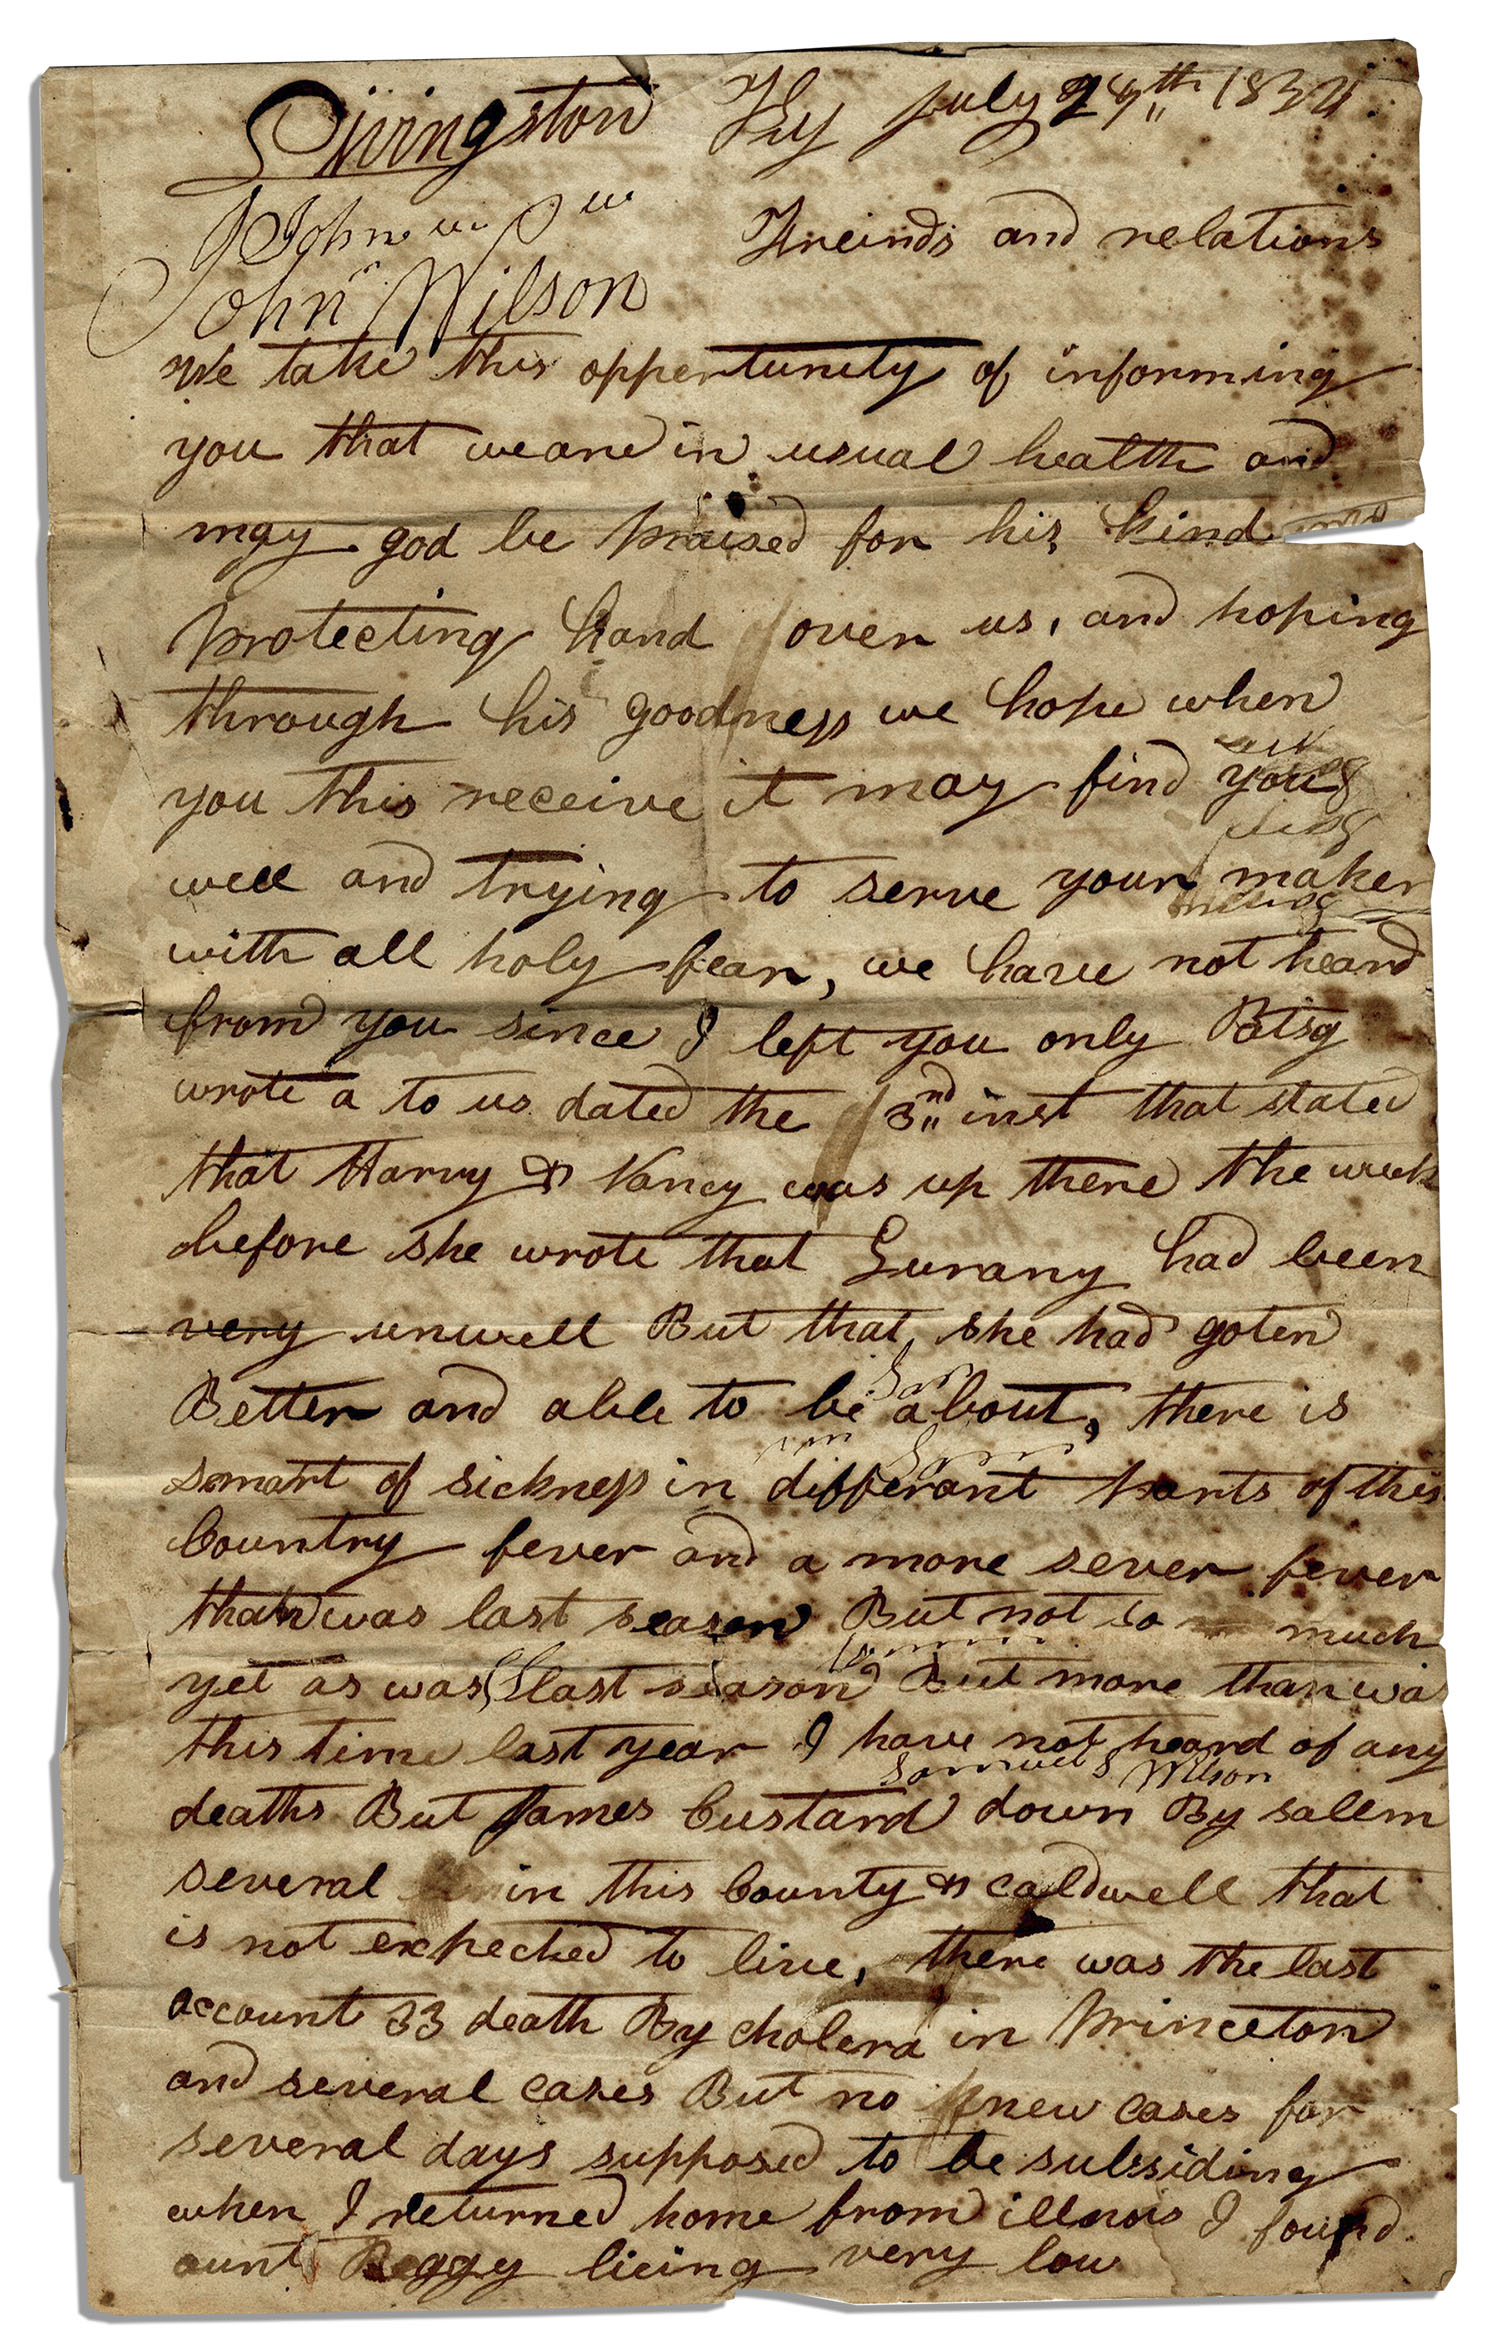 Livingston Ky July 24th 1834
John
Freinds and relations
John Wilson
We take this oppertunity of informing
you that we are in usual health and
may god be praised for his kind
protecting hand over us, and hoping
through his goodness we hope when
you this receive it may find you
well and trying to serve your maker
with all holy fear, we have not heard
from you since I left you only Betsy
wrote a to us dated the 3nd inst that stated
that Harvy & Nancy was up there the week
before she wrote that Lurany had been
very unwell But that she had goten
Better and able to be about, there is
smart of sickness in differant parts of this
Country fever and a more sever fever
than was last season But not so much
yet as was last season But more than was
this time last year I have not heard of any
Samuel Wilson
deaths But James Custard down By salem
several in this County & caldwell that
is not expected to live, there was the last
account 33 death By cholera in Princeton
and several cases But no new cases for
several days supposed to be subsiding
when I returned home from illnois I found
aunt Peggy lieing very low